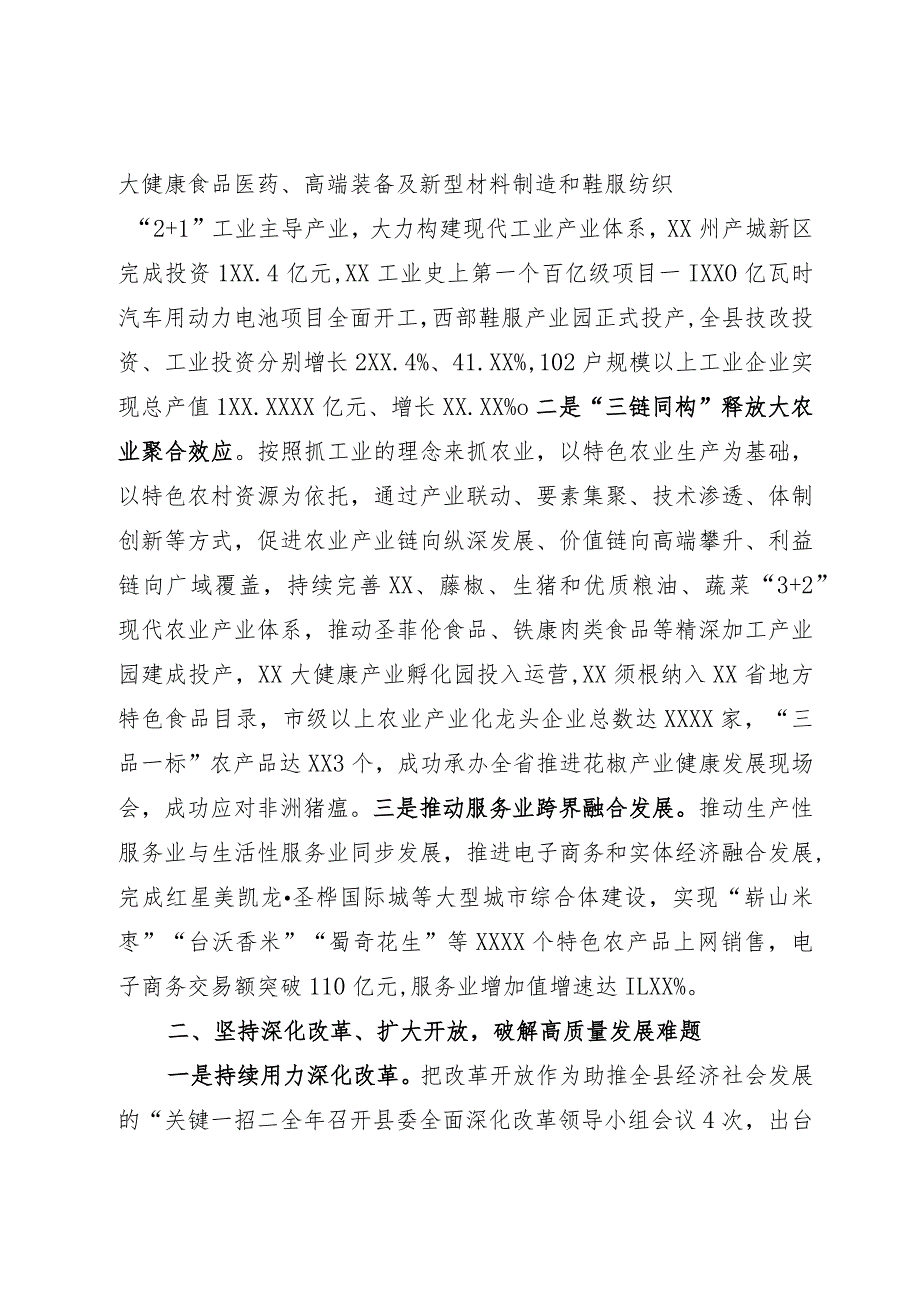 大健康食品医药、高端装备及新型材料制造和鞋服纺织
“2+1”工业主导产业，大力构建现代工业产业体系，XX 州产城新区
完成投资 1XX.4 亿元,XX 工业史上第一个百亿级项目一 IXXO 亿瓦时
汽车用动力电池项目全面开工,西部鞋服产业园正式投产,全县技改投
资、工业投资分别增长 2XX.4%、41.XX%,102 户规模以上工业企业实
现总产值 1XX.XXXX 亿元、增长 XX.XX%o 二是“三链同构”释放大农
业聚合效应。按照抓工业的理念来抓农业，以特色农业生产为基础，
以特色农村资源为依托，通过产业联动、要素集聚、技术渗透、体制
创新等方式，促进农业产业链向纵深发展、价值链向高端攀升、利益
链向广域覆盖，持续完善 XX、藤椒、生猪和优质粮油、蔬菜“3+2”
现代农业产业体系，推动圣菲伦食品、铁康肉类食品等精深加工产业
园建成投产，XX 大健康产业孵化园投入运营,XX 须根纳入 XX 省地方
特色食品目录，市级以上农业产业化龙头企业总数达 XXXX 家，“三
品一标”农产品达 XX3 个，成功承办全省推进花椒产业健康发展现场
会，成功应对非洲猪瘟。三是推动服务业跨界融合发展。推动生产性
服务业与生活性服务业同步发展，推进电子商务和实体经济融合发展,
完成红星美凯龙•圣桦国际城等大型城市综合体建设，实现“崭山米
枣”“台沃香米”“蜀奇花生”等 XXXX 个特色农产品上网销售，电
子商务交易额突破 110 亿元,服务业增加值增速达 ILXX%。
二、坚持深化改革、扩大开放，破解高质量发展难题
一是持续用力深化改革。把改革开放作为助推全县经济社会发展
的“关键一招二全年召开县委全面深化改革领导小组会议 4 次，出台